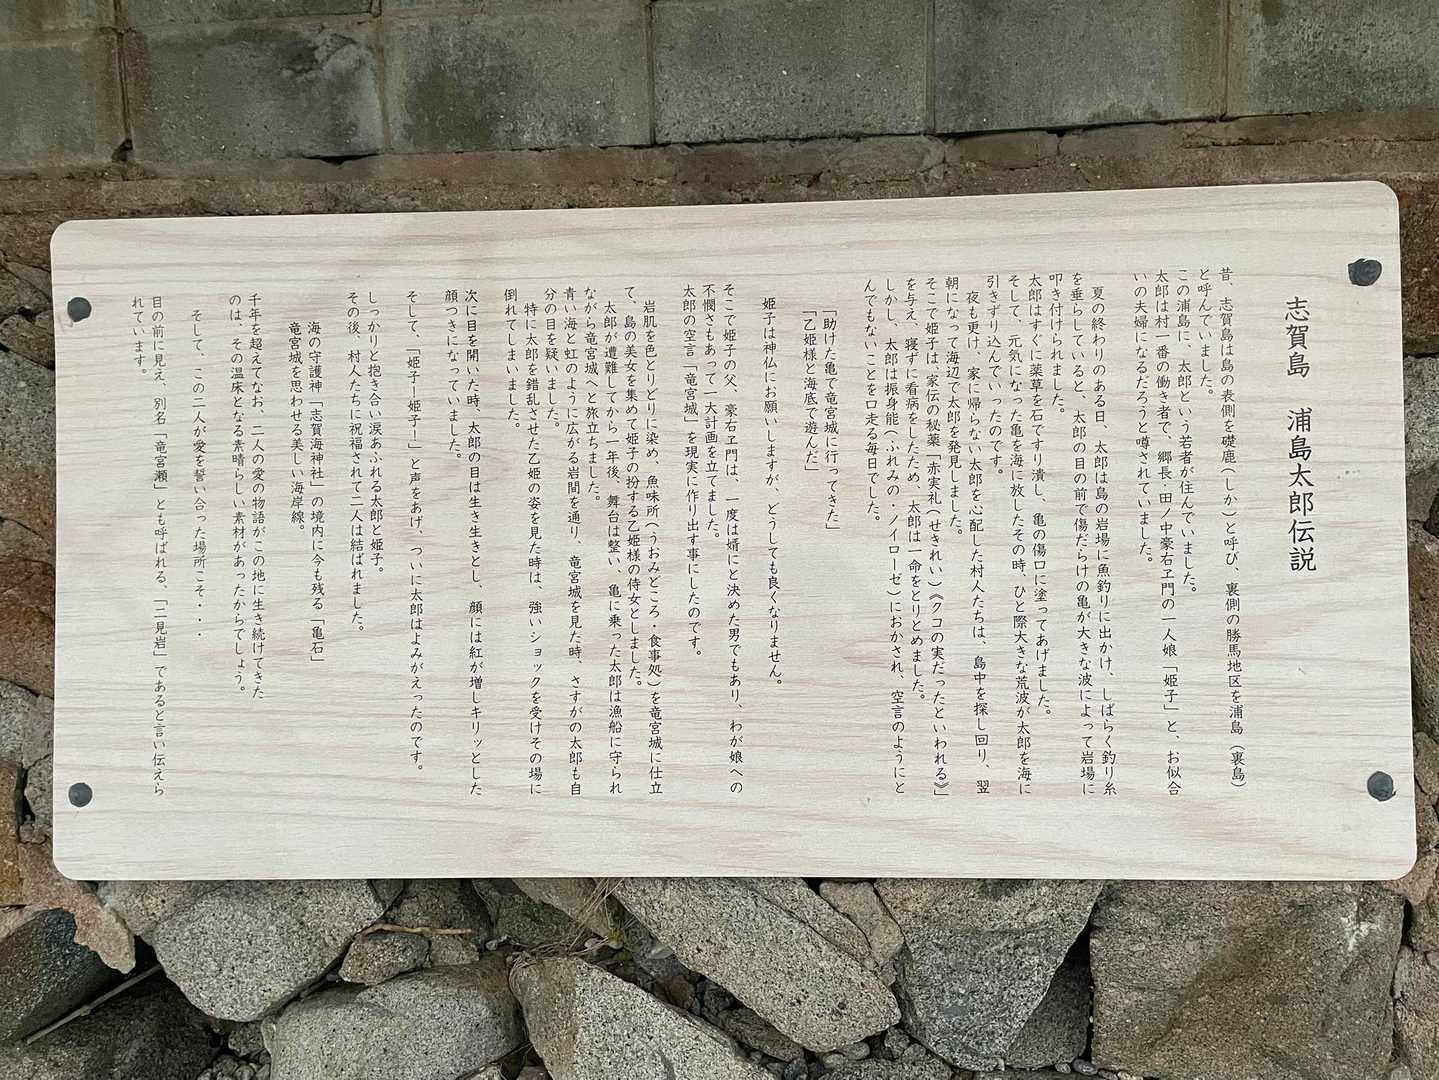 志賀島　浦島太郎伝説
昔、志賀島は島の表側を礎鹿(しか)と呼び、裏側の勝馬地区を浦島(裏島)
と呼んでいました。
この浦島に、太郎という若者が住んでいました。
太郎は村一番の働き者で、郷長・田ノ中豪右ヱ門の一人娘「姫子」と、お似合
いの夫婦になるだろうと噂されていました。
夏の終わりのある日、太郎は島の岩場に魚釣りに出かけ、しばらく釣り糸
を垂らしていると、太郎の目の前で傷だらけの亀が大きな波によって岩場に
叩き付けられました。
太郎はすぐに薬草を石ですり潰し、亀の傷口に塗ってあげました。
そして、元気になった亀を海に放したその時、ひと際大きな荒波が太郎を海に
引きずり込んでいったのです。
夜も更け、家に帰らない太郎を心配した村人たちは、島中を探し回り、翌
朝になって海辺で太郎を発見しました。
そこで姫子は、家伝の秘薬「赤実礼(せきれい)《クコの実だったといわれる》」
を与え、寝ずに看病をしたため、太郎は一命をとりとめました。
しかし、太郎は振身能(ふれみの・ノイローゼ)におかされ、空言のようにと
んでもないことを口走る毎日でした。
「助けた亀で竜宮城に行ってきた」
「乙姫様と海底で遊んだ」
姫子は神仏にお願いしますが、どうしても良くなりません。
そこで姫子の父、豪右ヱ門は、一度は婿にと決めた男でもあり、わが娘への
不憫さもあって一大計画を立てました。
太郎の空言「竜宮城」を現実に作り出す事にしたのです。
岩肌を色とりどりに染め、魚味所(うおみどころ・食事処)を竜宮城に仕立
て、島の美女を集めて姫子の扮する乙姫様の侍女としました。
太郎が遭難してから一年後、舞台は整い、亀に乗った太郎は漁船に守られ
ながら竜宮城へと旅立ちました。
青い海と虹のように広がる岩間を通り、竜宮城を見た時、さすがの太郎も自
分の目を疑いました。
特に太郎を錯乱させた乙姫の姿を見た時は、強いショックを受けその場に
倒れてしまいました。
次に目を開いた時、太郎の目は生き生きとし、顔には紅が増しキリッとした
顔つきになっていました。
そして、「姫子ー姫子ー」と声をあげ、ついに太郎はよみがえったのです。
しっかりと抱き合い涙あふれる太郎と姫子。
その後、村人たちに祝福されて二人は結ばれました。
海の守護神「志賀海神社」の境内に今も残る「亀石」
竜宮城を思わせる美しい海岸線。
千年を超えてなお、二人の愛の物語がこの地に生き続けてきた
のは、その温床となる素晴らしい素材があったからでしょう。
そして、この二人が愛を誓い合った場所こそ・・・
目の前に見え、別名「竜宮瀬」とも呼ばれる、「二見岩」であると言い伝えら
れています。